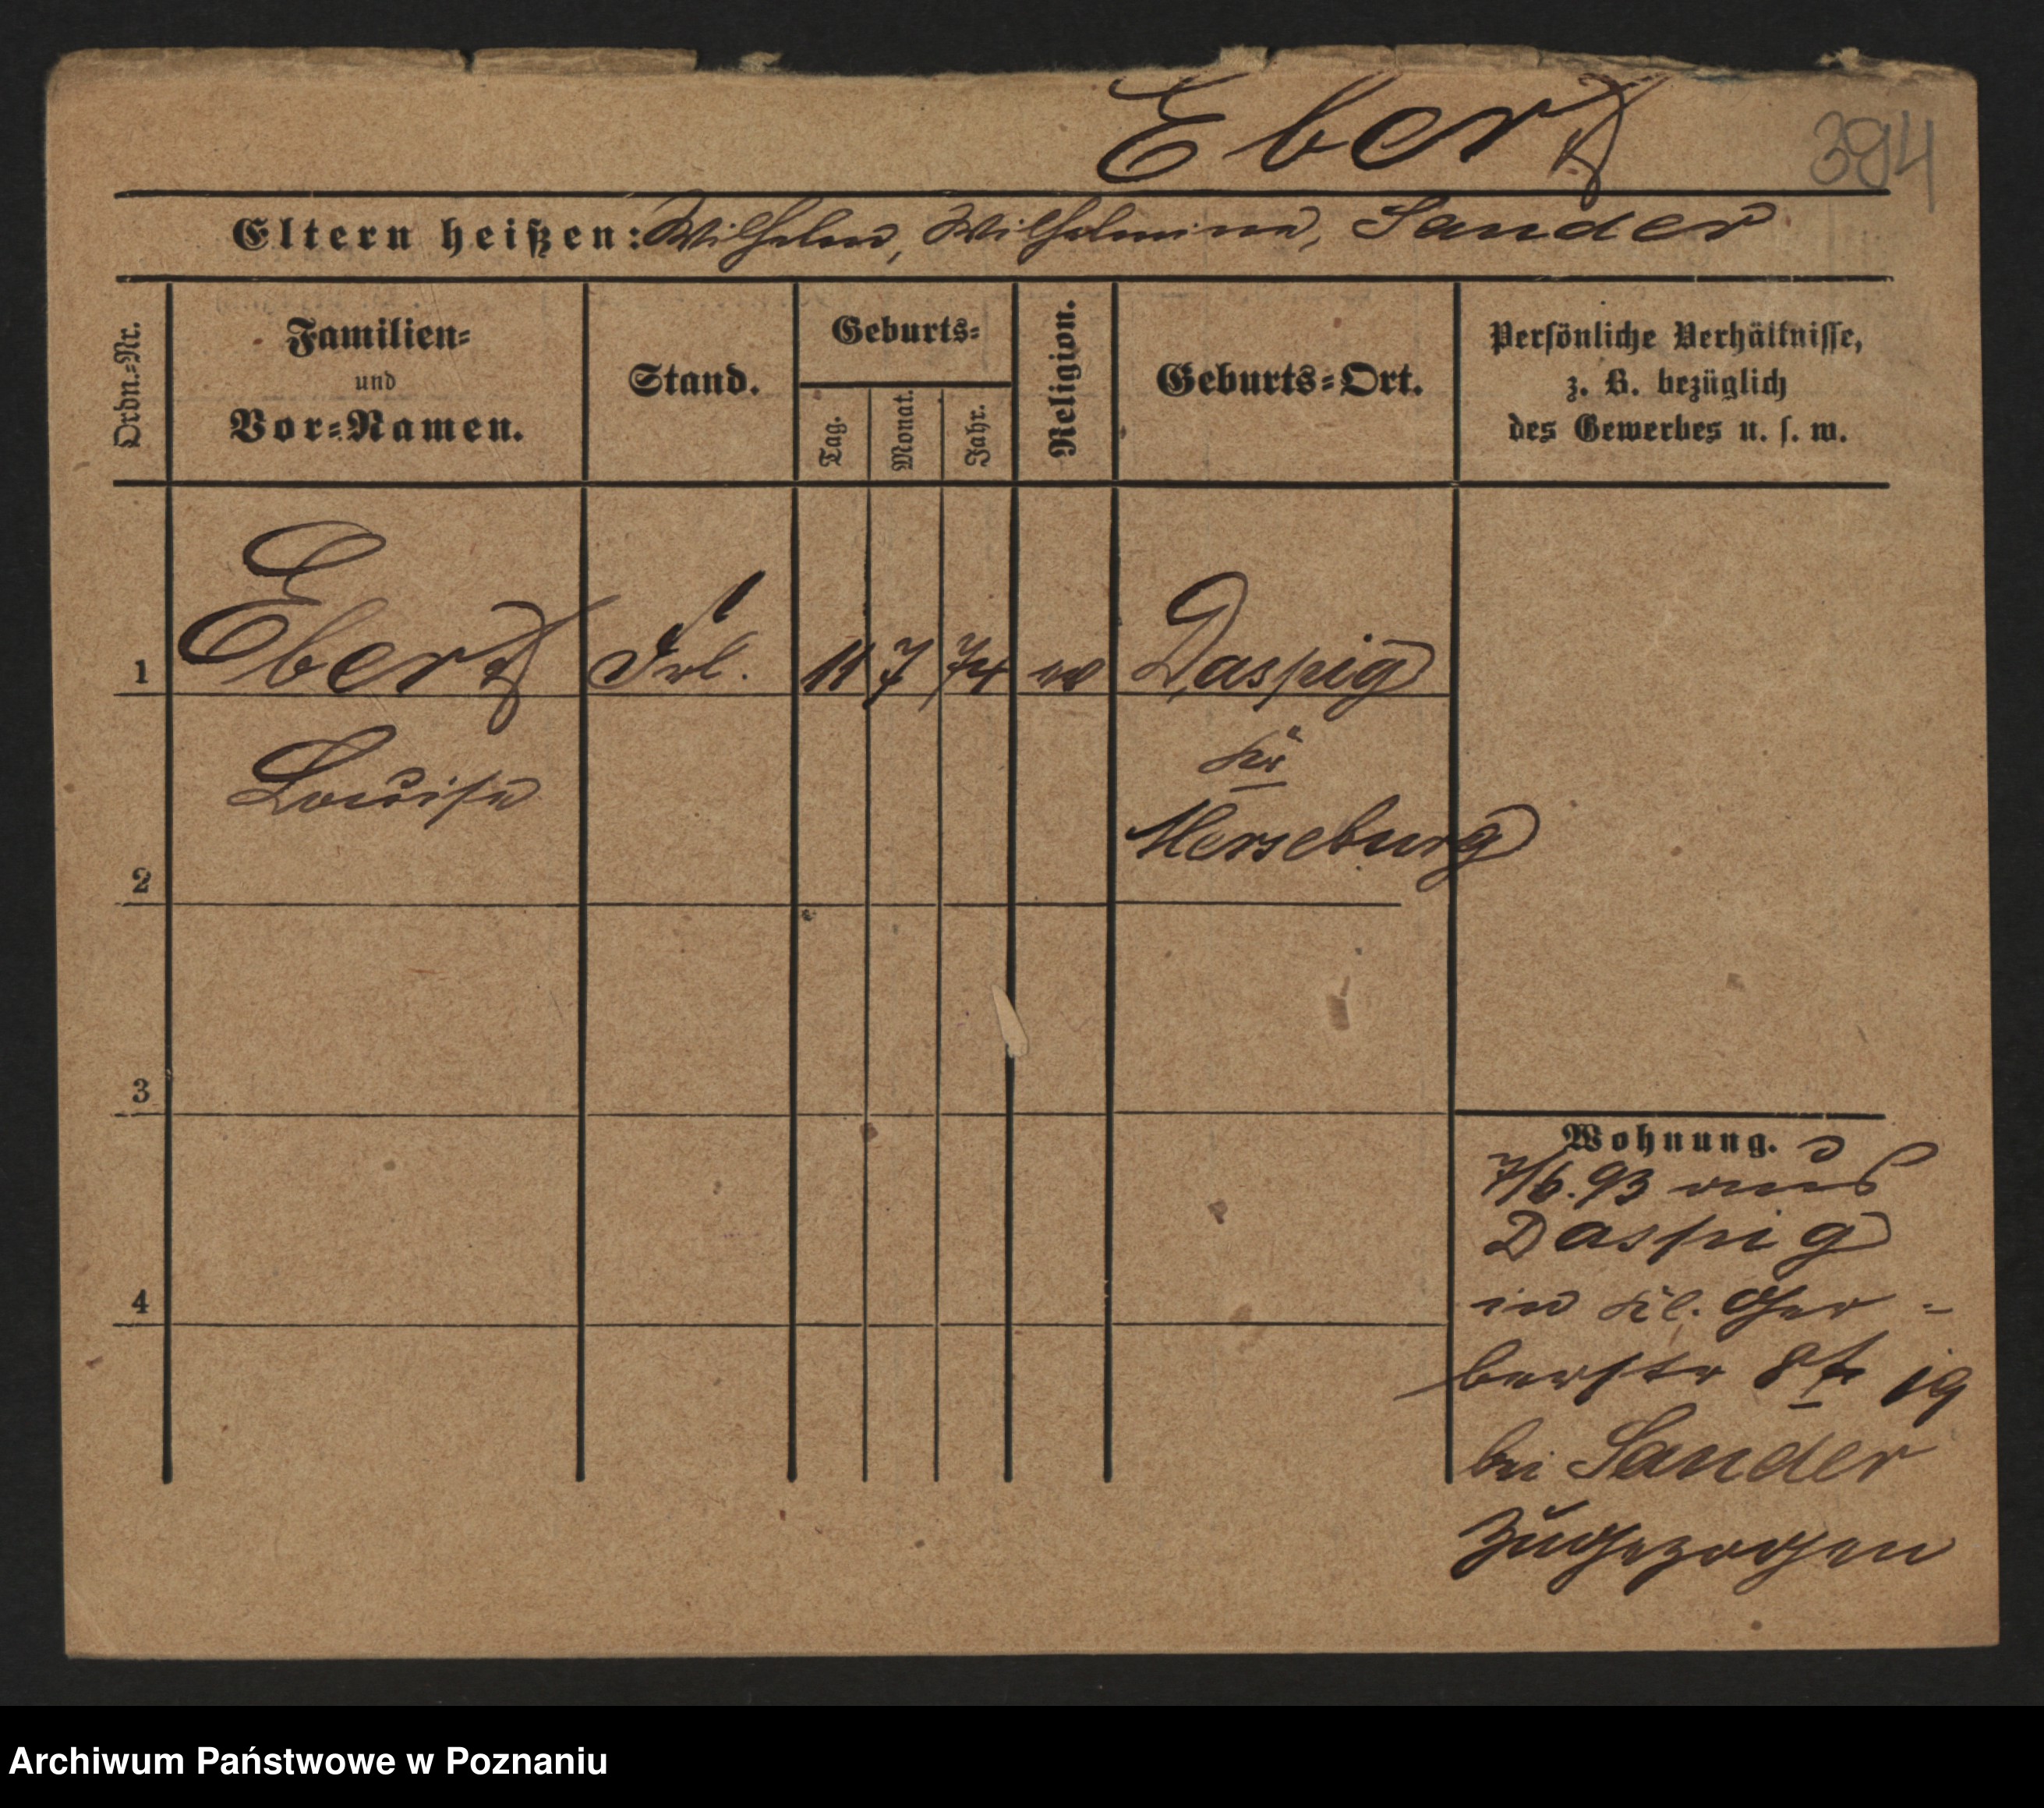 Ebert
394
Eltern heißen: Wilhelm, Wilhelmine, Sander
Ordn.-Nr.
Familien-
und
Vor-Namen.
Stand.
Geburts-
Tag.
Monat.
Jahr.
Religion.
Geburts-Ort.
Persönliche Verhältnisse,
z. B. bezüglich
des Gewerbes u. s. w.
1 Ebert Frl. 11 7 74 ev Daspig
Louise
Kr
Merseburg
2
3
4
Wohnung.
7/6.93 aus
Daspig
in Kl. Ger-
berstr 19
bei Sander
zugezogen
Archiwum Państwowe w Poznaniu